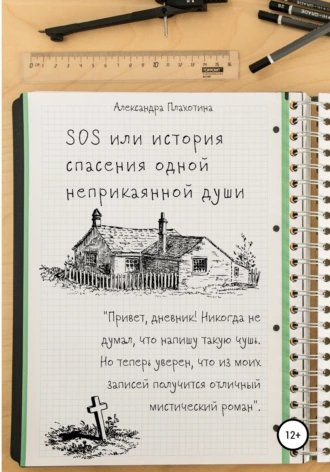 Александра Плахотина
SOS или история
спасения одной
неприкаянной души
"Привет, дневник! Никогда не
думал, что напишу такую чушь.
Но теперь уверен, что из моих
записей получится отличный
мистический роман".
12+